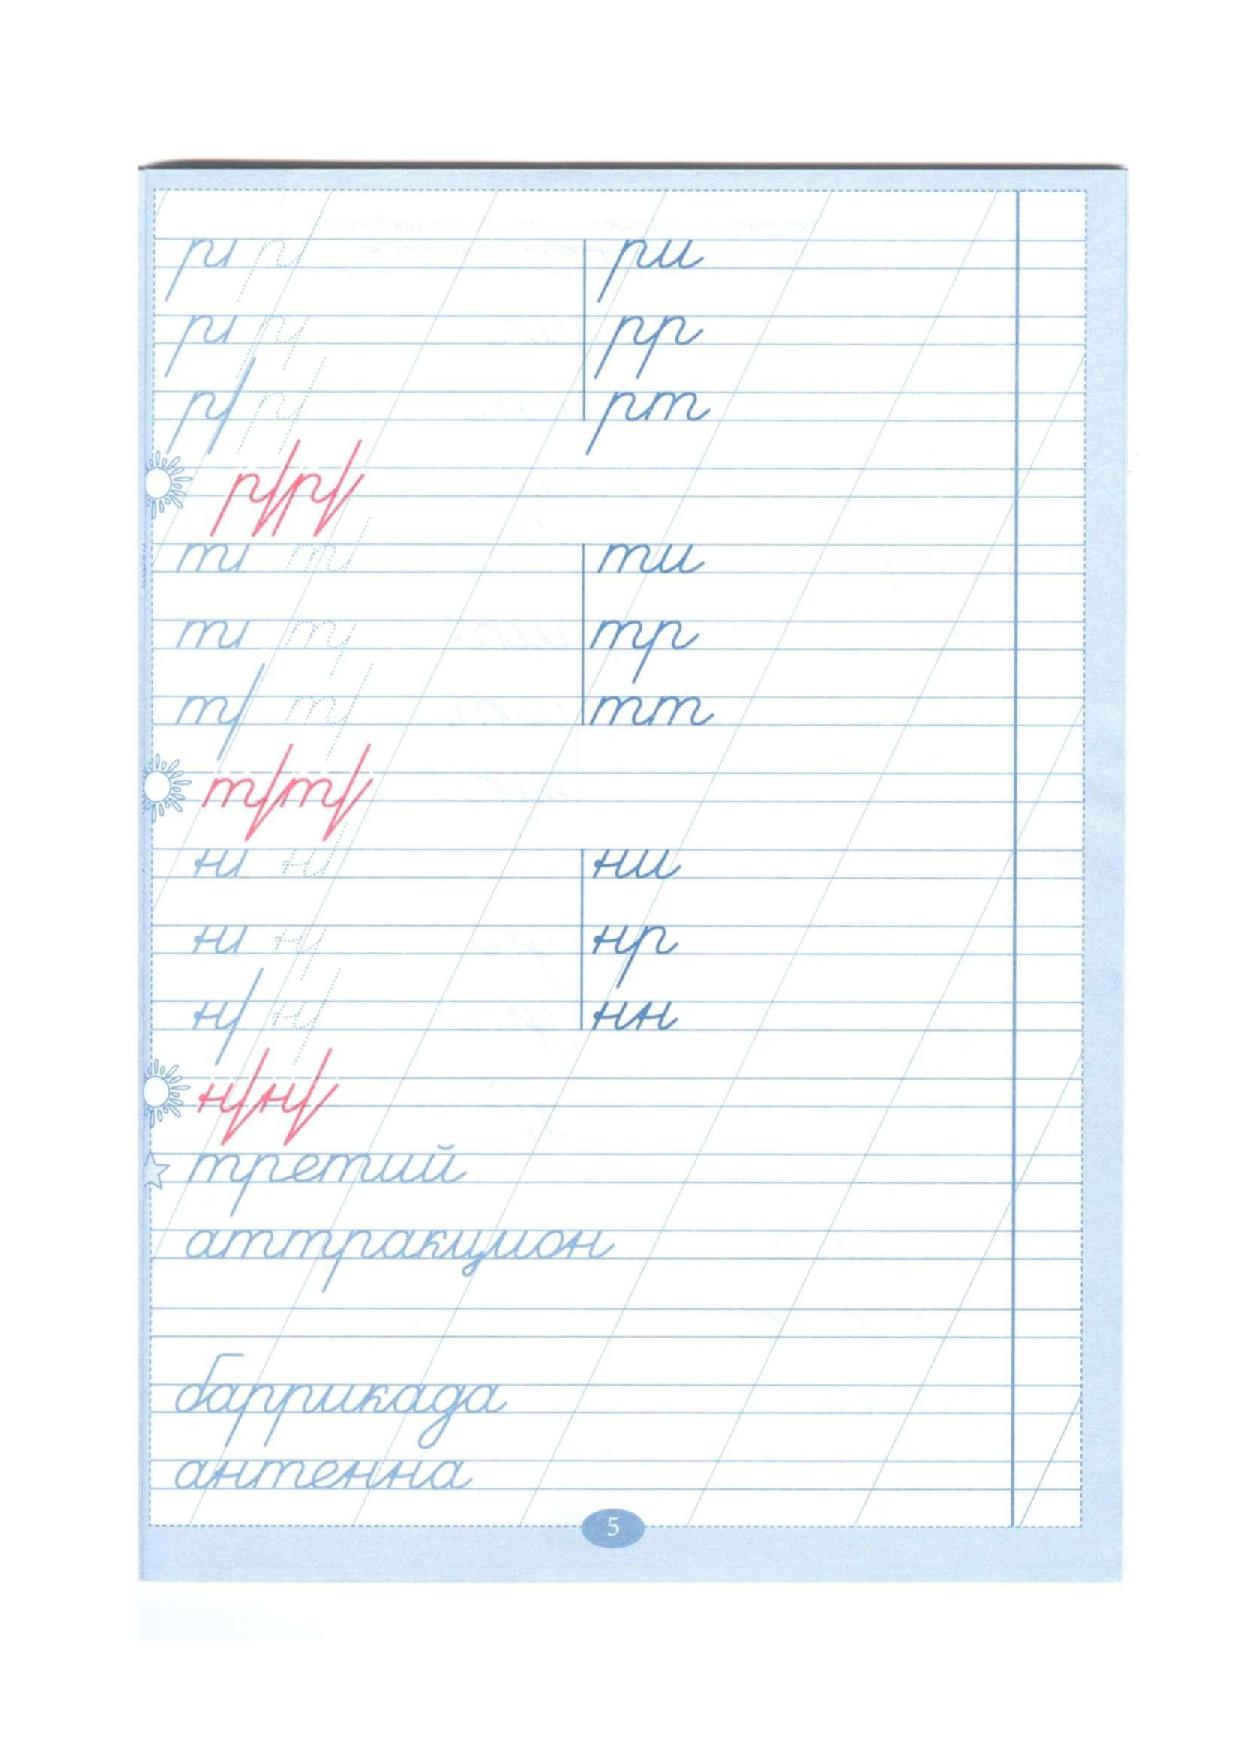 ри
рр
рт
ти
тр
тт
ни
нр
нн
третий
аттракцион
баррикада
антенна
5